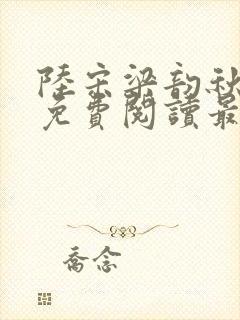 陸宗梁韵秋
免費閱讀最
喬念